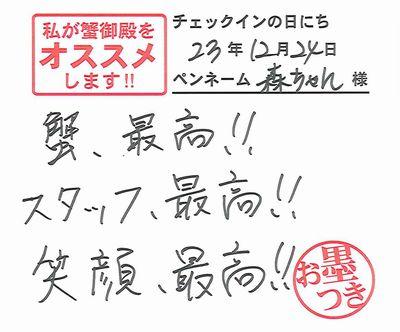 私が蟹御殿を
オススメ
します!!
チェックインの日にち
23年12月24日
ペンネーム 森ちゃん 様
蟹、最高!!
スタッフ、最高!!
笑顔、最高!!
お墨つき